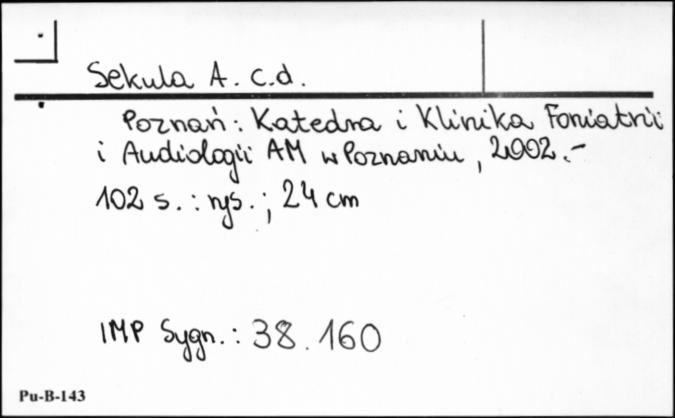 Sekula A. c.d.
Poznań: Katedra i Klinika Foniatrii
i Audiologii AM w Poznaniu, 2002.-
102 s. : rys. ; 24 cm
IMP Sygn. : 38.160
Pu-B-143